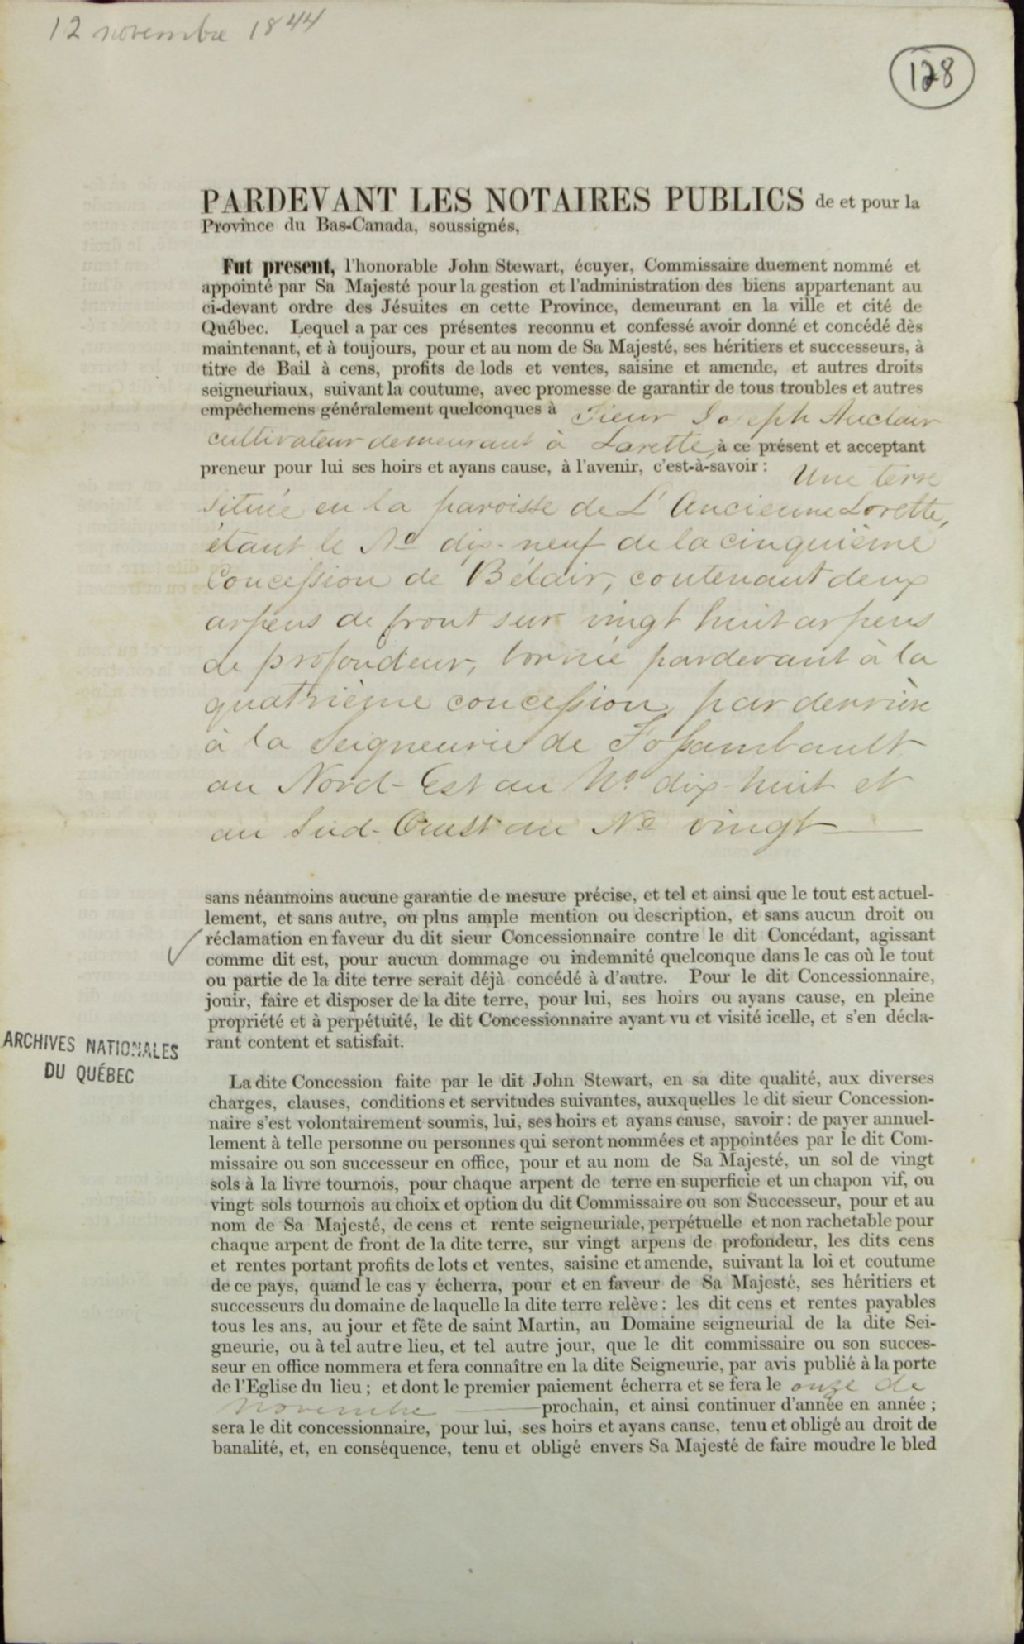 12 novembre 1844
128
PARDEVANT LES NOTAIRES PUBLICS de et pour la
Province du Bas-Canada, soussignés,
Fut present, l'honorable John Stewart, écuyer, Commissaire duement nommé et
appointé par Sa Majesté pour la gestion et l'administration des biens appartenant au
ci-devant ordre des Jésuites en cette Province, demeurant en la ville et cité de
Québec. Lequel a par ces présentes reconnu et confessé avoir donné et concédé dès
maintenant, et à toujours, pour et au nom de Sa Majesté, ses héritiers et successeurs, à
titre de Bail à cens, profits de lods et ventes, saisine et amende, et autres droits
seigneuriaux, suivant la coutume, avec promesse de garantir de tous troubles et autres
empêchemens généralement quelconques à Sieur Joseph Auclair
cultivateur demeurant à Lorette, à ce présent et acceptant
preneur pour lui ses hoirs et ayans cause, à l'avenir, c'est-à-savoir : Une terre
située en la paroisse de L'Ancienne Lorette,
étant le No dix-neuf de la cinquième
Concession de Bélair, contenant deux
arpens de front sur vingt huit arpens
de profondeur, bornée pardevant à la
quatrième concession, par derrière
à la Seigneurie de Fossambault
au Nord-Est au No dix-huit et
au Sud-Ouest au No vingt
sans néanmoins aucune garantie de mesure précise, et tel et ainsi que le tout est actuel-
lement, et sans autre, ou plus ample mention ou description, et sans aucun droit ou
réclamation en faveur du dit sieur Concessionnaire contre le dit Concédant, agissant
comme dit est, pour aucun dommage ou indemnité quelconque dans le cas où le tout
ou partie de la dite terre serait déjà concédé à d'autre. Pour le dit Concessionnaire,
jouir, faire et disposer de la dite terre, pour lui, ses hoirs ou ayans cause, en pleine
propriété et à perpétuité, le dit Concessionnaire ayant vu et visité icelle, et s'en décla-
rant content et satisfait.
ARCHIVES NATIONALES
DU QUÉBEC
La dite Concession faite par le dit John Stewart, en sa dite qualité, aux diverses
charges, clauses, conditions et servitudes suivantes, auxquelles le dit sieur Concession-
naire s'est volontairement soumis, lui, ses hoirs et ayans cause, savoir : de payer annuel-
lement à telle personne ou personnes qui seront nommées et appointées par le dit Com-
missaire ou son successeur en office, pour et au nom de Sa Majesté, un sol de vingt
sols à la livre tournois, pour chaque arpent de terre en superficie et un chapon vif, ou
vingt sols tournois au choix et option du dit Commissaire ou son Successeur, pour et au
nom de Sa Majesté, de cens et rente seigneuriale, perpétuelle et non rachetable pour
chaque arpent de front de la dite terre, sur vingt arpens de profondeur, les dits cens
et rentes portant profits de lots et ventes, saisine et amende, suivant la loi et coutume
de ce pays, quand le cas y écherra, pour et en faveur de Sa Majesté, ses héritiers et
successeurs du domaine de laquelle la dite terre relève : les dit cens et rentes payables
tous les ans, au jour et fête de saint Martin, au Domaine seigneurial de la dite Sei-
gneurie, ou à tel autre lieu, et tel autre jour, que le dit commissaire ou son succes-
seur en office nommera et fera connaître en la dite Seigneurie, par avis publié à la porte
de l'Eglise du lieu ; et dont le premier paiement écherra et se fera le onze de
novembre prochain, et ainsi continuer d'année en année ;
sera le dit concessionnaire, pour lui, ses hoirs et ayans cause, tenu et obligé au droit de
banalité, et, en conséquence, tenu et obligé envers Sa Majesté de faire moudre le bled